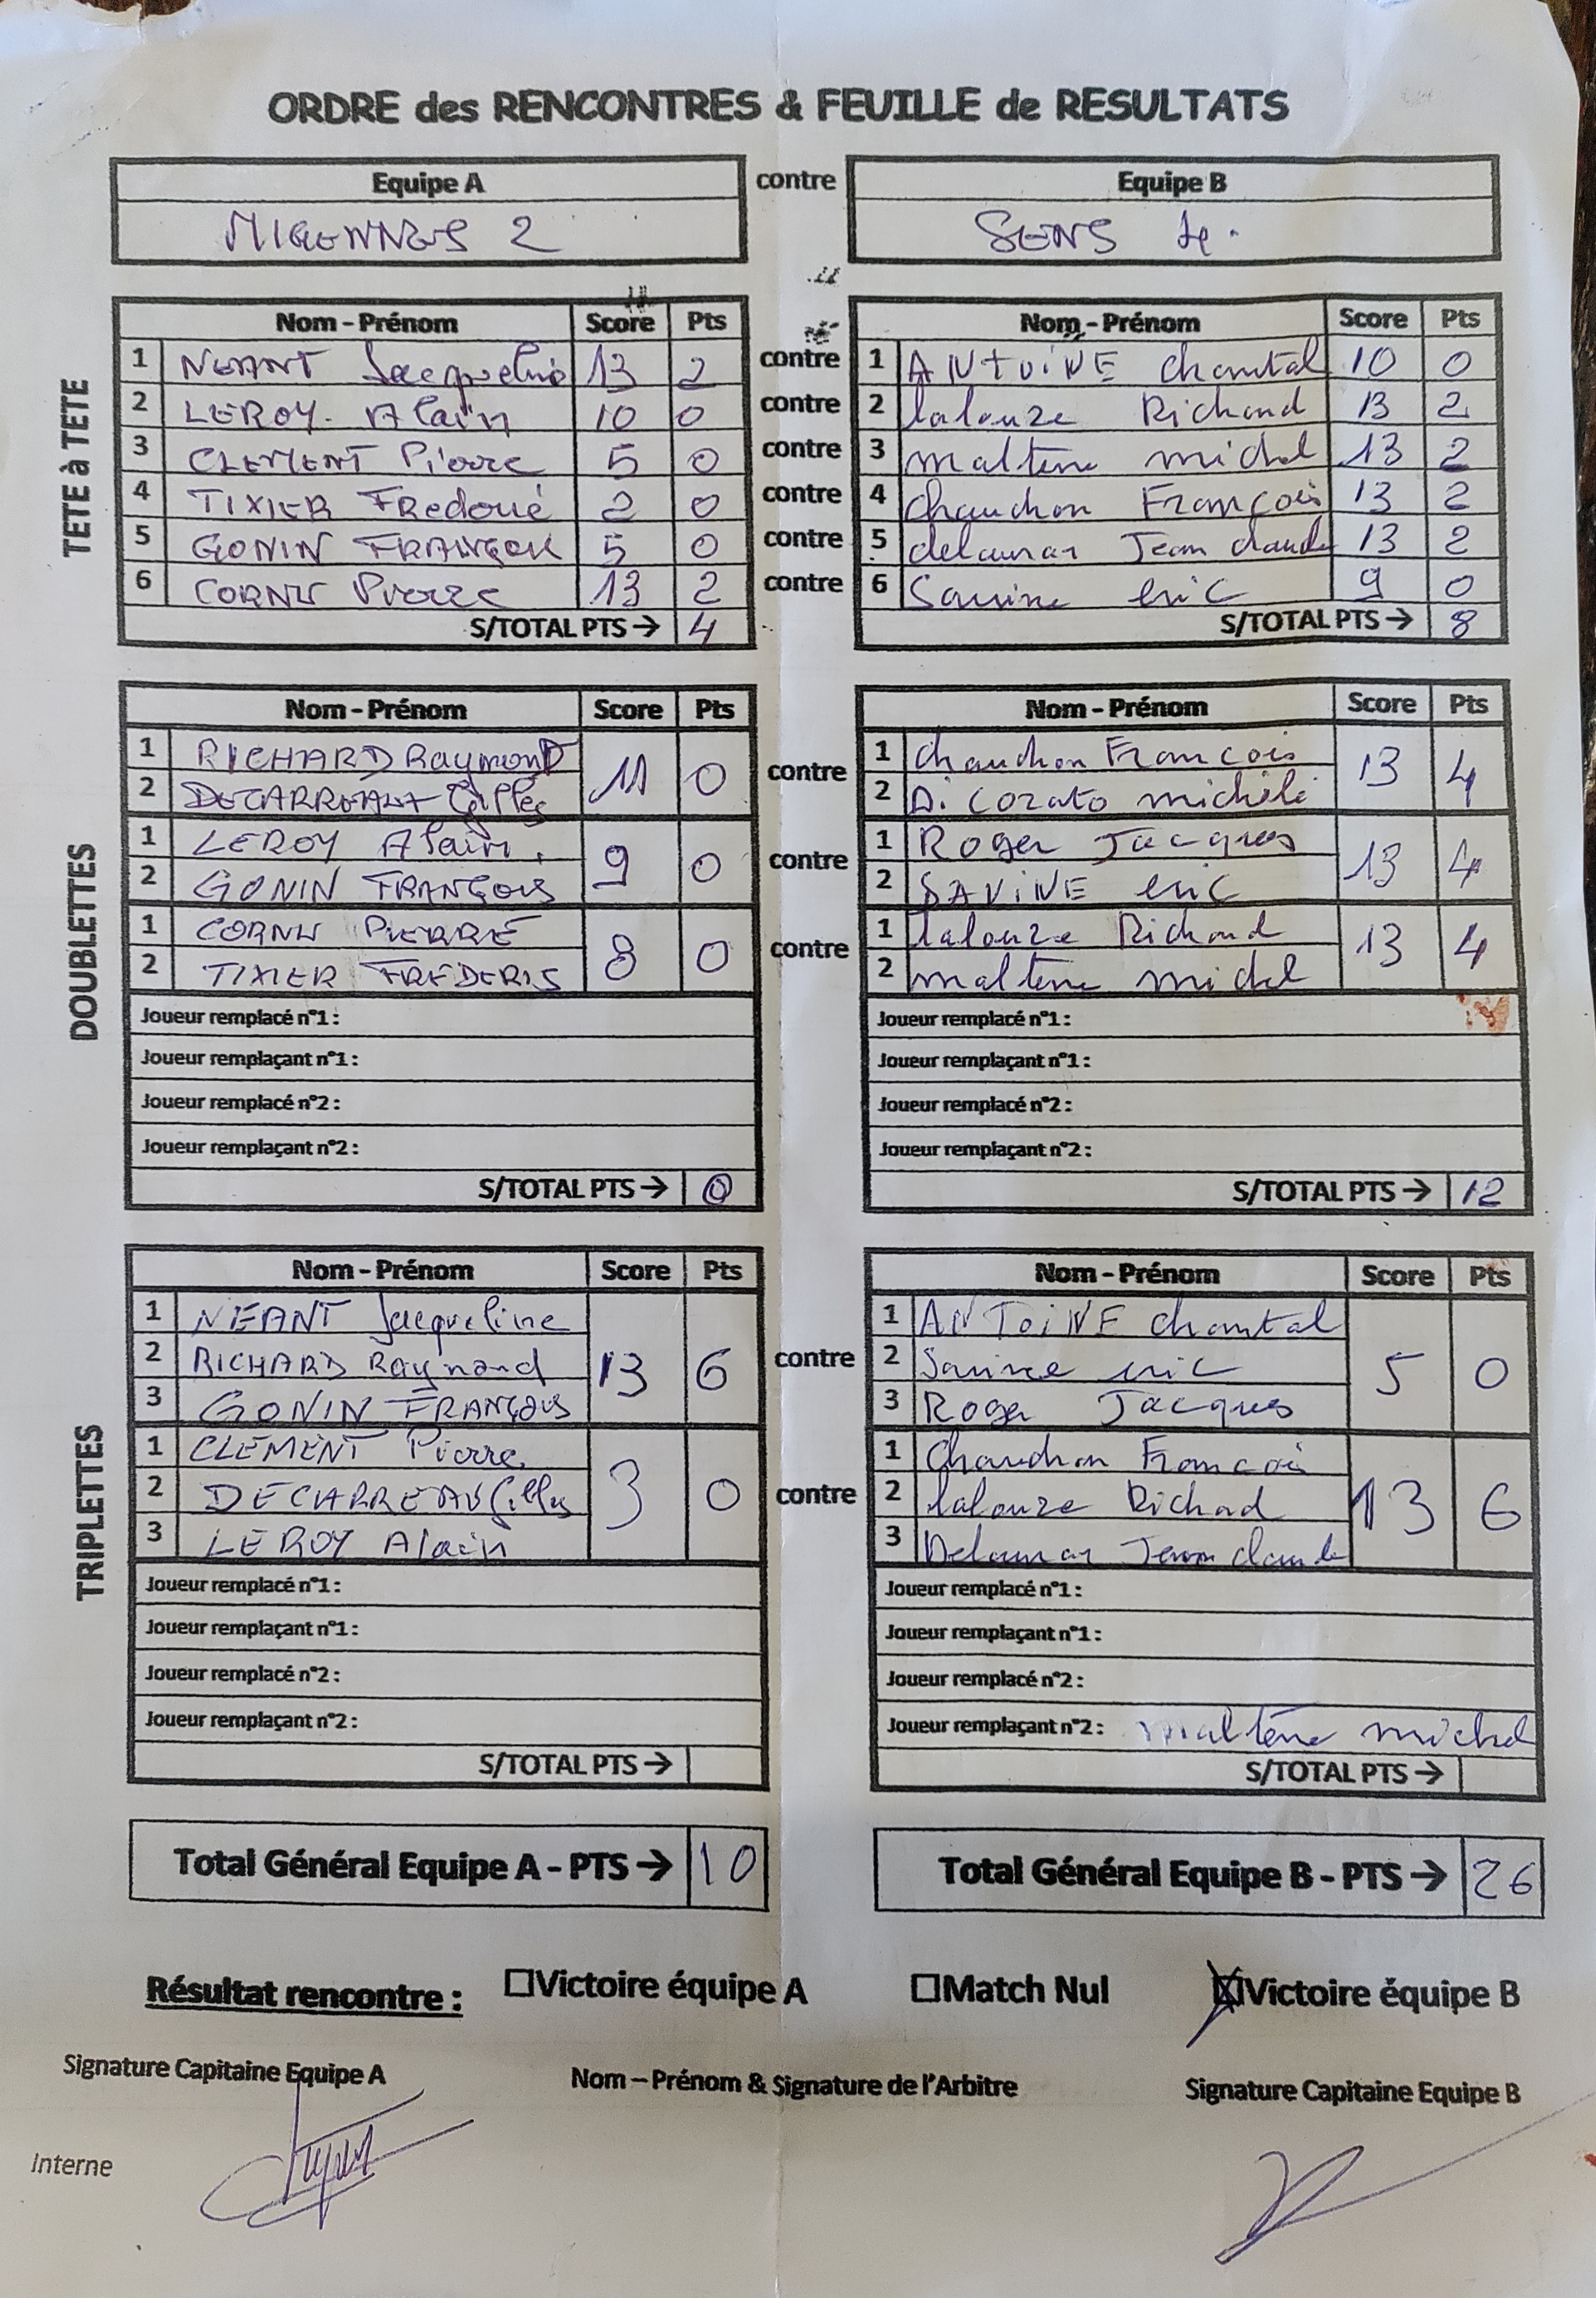 ORDRE des RENCONTRES & FEUILLE de RESULTATS
Equipe A contre Equipe B
MIGENNES 2 SENS 4.
TETE à TETE
Nom - Prénom Score Pts Nom - Prénom Score Pts
1 NEANT Jacqueline 13 2 contre 1 ANtoiNE chantal 10 0
2 LEROY. Alain 10 0 contre 2 lalouze Richard 13 2
3 CLEMENT Pierre 5 0 contre 3 maltene michel 13 2
4 TIXIER 2 0 contre 4 chaudron François 13 2
5 GONIN 5 0 contre 5 delaunay Jean claude 13 2
6 CORNU Pierre 13 2 contre 6 Savine eric 9 0
S/TOTAL PTS → 4 S/TOTAL PTS → 8
DOUBLETTES
Nom - Prénom Score Pts Nom - Prénom Score Pts
1 RICHARD RaymonD 1 chaudron Francois
11 0 contre 13 4
2 DECARREAUX Gilles 2 Di Corato michele
1 LEROY Alain. 1 Roger Jacques
9 0 contre 13 4
2 GONIN FRANÇOIS 2 SAViNE eric
1 CORNU PIERRE 1 lalouze Richard
8 0 contre 13 4
2 TIXIER 2 maltene michel
Joueur remplacé n°1 : Joueur remplacé n°1 :
Joueur remplaçant n°1 : Joueur remplaçant n°1 :
Joueur remplacé n°2 : Joueur remplacé n°2 :
Joueur remplaçant n°2 : Joueur remplaçant n°2 :
S/TOTAL PTS → 0 S/TOTAL PTS → 12
TRIPLETTES
Nom - Prénom Score Pts Nom - Prénom Score Pts
1 NEANT Jacqueline 1 ANToiNE chantal
2 RICHARD Raymond 13 6 contre 2 Savine eric 5 0
3 GONIN FRANÇOIS 3 Roger Jacques
1 CLEMENT Pierre 1 Chaudron Francois
2 DECARREAUX Gilles 3 0 contre 2 lalouze Richad 13 6
3 LEROY Alain 3 Delaunay Jean claude
Joueur remplacé n°1 : Joueur remplacé n°1 :
Joueur remplaçant n°1 : Joueur remplaçant n°1 :
Joueur remplacé n°2 : Joueur remplacé n°2 :
Joueur remplaçant n°2 : Joueur remplaçant n°2 : maltène michel
S/TOTAL PTS → S/TOTAL PTS →
Total Général Equipe A - PTS → 10 Total Général Equipe B - PTS → 26
Résultat rencontre : Victoire équipe A Match Nul Victoire équipe B
Signature Capitaine Equipe A Nom – Prénom & Signature de l'Arbitre Signature Capitaine Equipe B
Interne